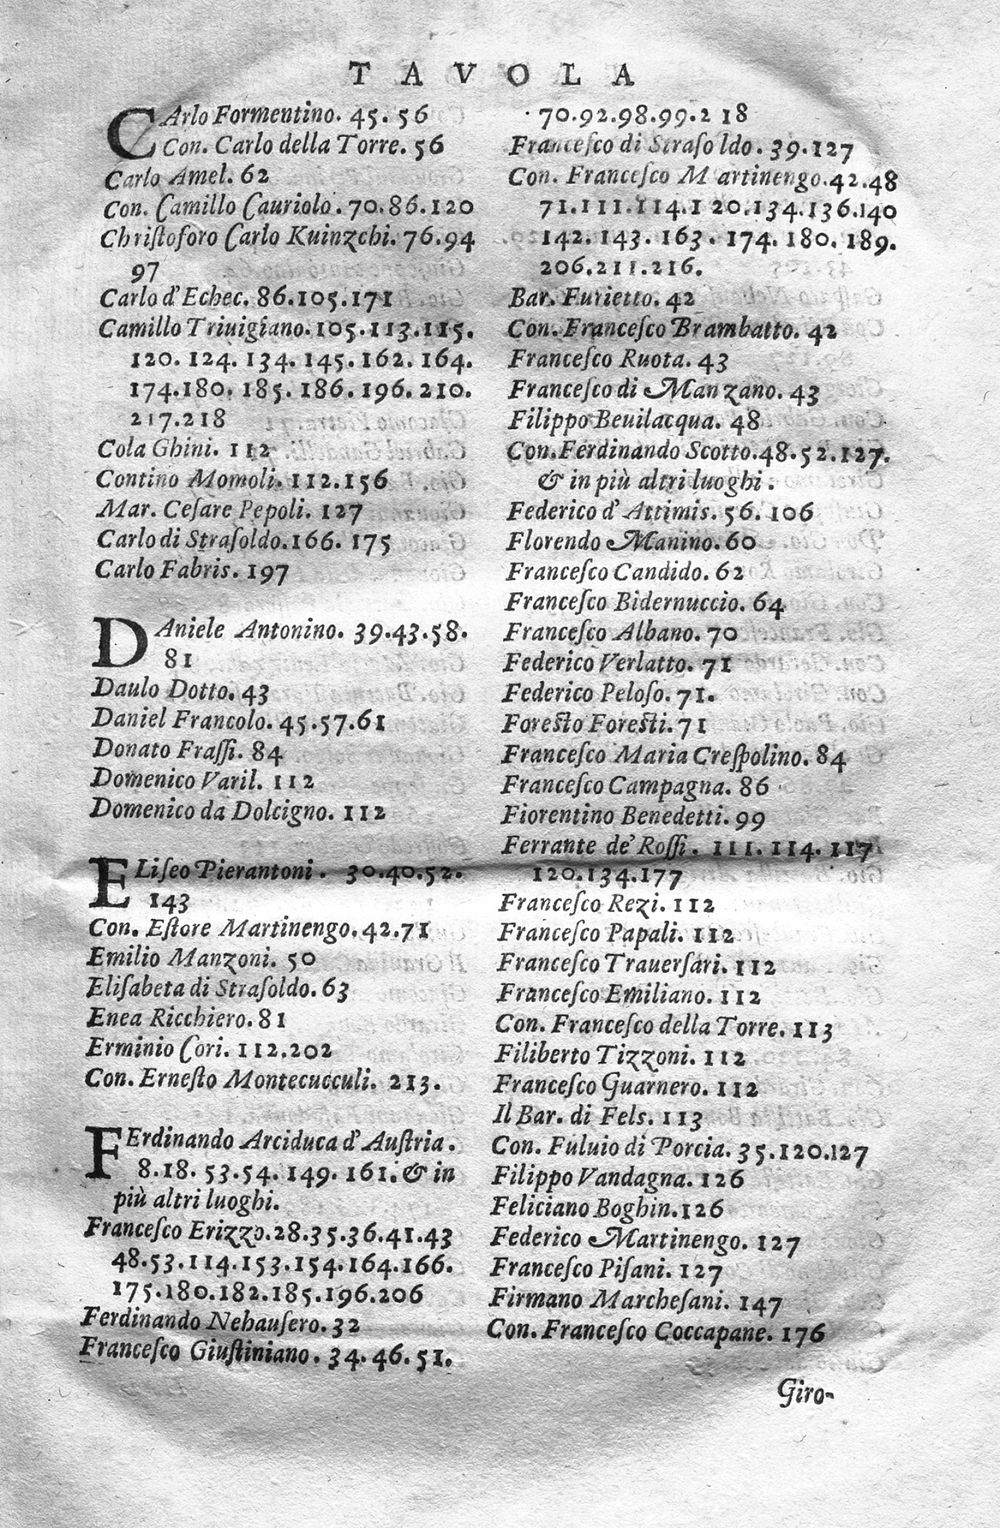 TAVOLA
CArlo Formentino. 45. 56
Con. Carlo della Torre. 56
Carlo Amel. 62
Con. Camillo Cauriolo. 70.86.120
Chriſtoforo Carlo Kuinzchi. 76.94
97
Carlo d'Echec. 86.105.171
Camillo Triuigiano. 105.113.115.
120. 124. 134. 145. 162. 164.
174.180. 185. 186. 196. 210.
217.218
Cola Ghini. 112
Contino Momoli. 112.156
Mar. Ceſare Pepoli. 127
Carlo di Straſoldo. 166. 175
Carlo Fabris. 197
DAniele Antonino. 39.43.58.
81
Daulo Dotto. 43
Daniel Francolo. 45.57.61
Donato Fraſſi. 84
Domenico Varil. 112
Domenico da Dolcigno. 112
ELiſeo Pierantoni. 30.40.52.
143
Con. Eſtore Martinengo. 42.71
Emilio Manzoni. 50
Eliſabeta di Straſoldo. 63
Enea Ricchiero. 81
Erminio Cori. 112.202
Con. Erneſto Montecucculi. 213.
FErdinando Arciduca d'Auſtria.
8.18. 53.54. 149. 161. & in
più altri luoghi.
Franceſco Erizzo. 28.35.36.41.43
48.53.114.153.154.164.166.
175.180.182.185.196.206
Ferdinando Nehauſero. 32
Franceſco Giuſtiniano. 34.46.51.
70.92.98.99.2 18
Franceſco di Straſoldo. 39.127
Con. Franceſco Martinengo. 42.48
71.111.114.1 20.134.136.140
142. 143. 163. 174. 180. 189.
206.211.216.
Bar. Furietto. 42
Con. Franceſco Brambatto. 42
Franceſco Ruota. 43
Franceſco di Manzano. 43
Filippo Beuilacqua. 48
Con. Ferdinando Scotto. 48.52.127.
& in più altri luoghi.
Federico d'Attimis. 56. 106
Florendo Manino. 60
Franceſco Candido. 62
Franceſco Bidernuccio. 64
Franceſco Albano. 70
Federico Verlatto. 71
Federico Peloſo. 71.
Foreſto Foreſti. 71
Franceſco Maria Creſpolino. 84
Franceſco Campagna. 86
Fiorentino Benedetti. 99
Ferrante de' Roſſi. 111. 114. 117
120.134.177
Franceſco Rezi. 112
Franceſco Papali. 112
Franceſco Trauerſari. 112
Franceſco Emiliano. 112
Con. Franceſco della Torre. 113
Filiberto Tizzoni. 112
Franceſco Guarnero. 112
Il Bar. di Fels. 113
Con. Fuluio di Porcia. 35.120.127
Filippo Vandagna. 126
Feliciano Boghin. 126
Federico Martinengo. 127
Franceſco Piſani. 127
Firmano Marcheſani. 147
Con. Franceſco Coccapane. 176
Giro-